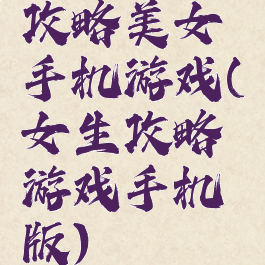 攻略美女
手机游戏(
女生攻略
游戏手机
版)